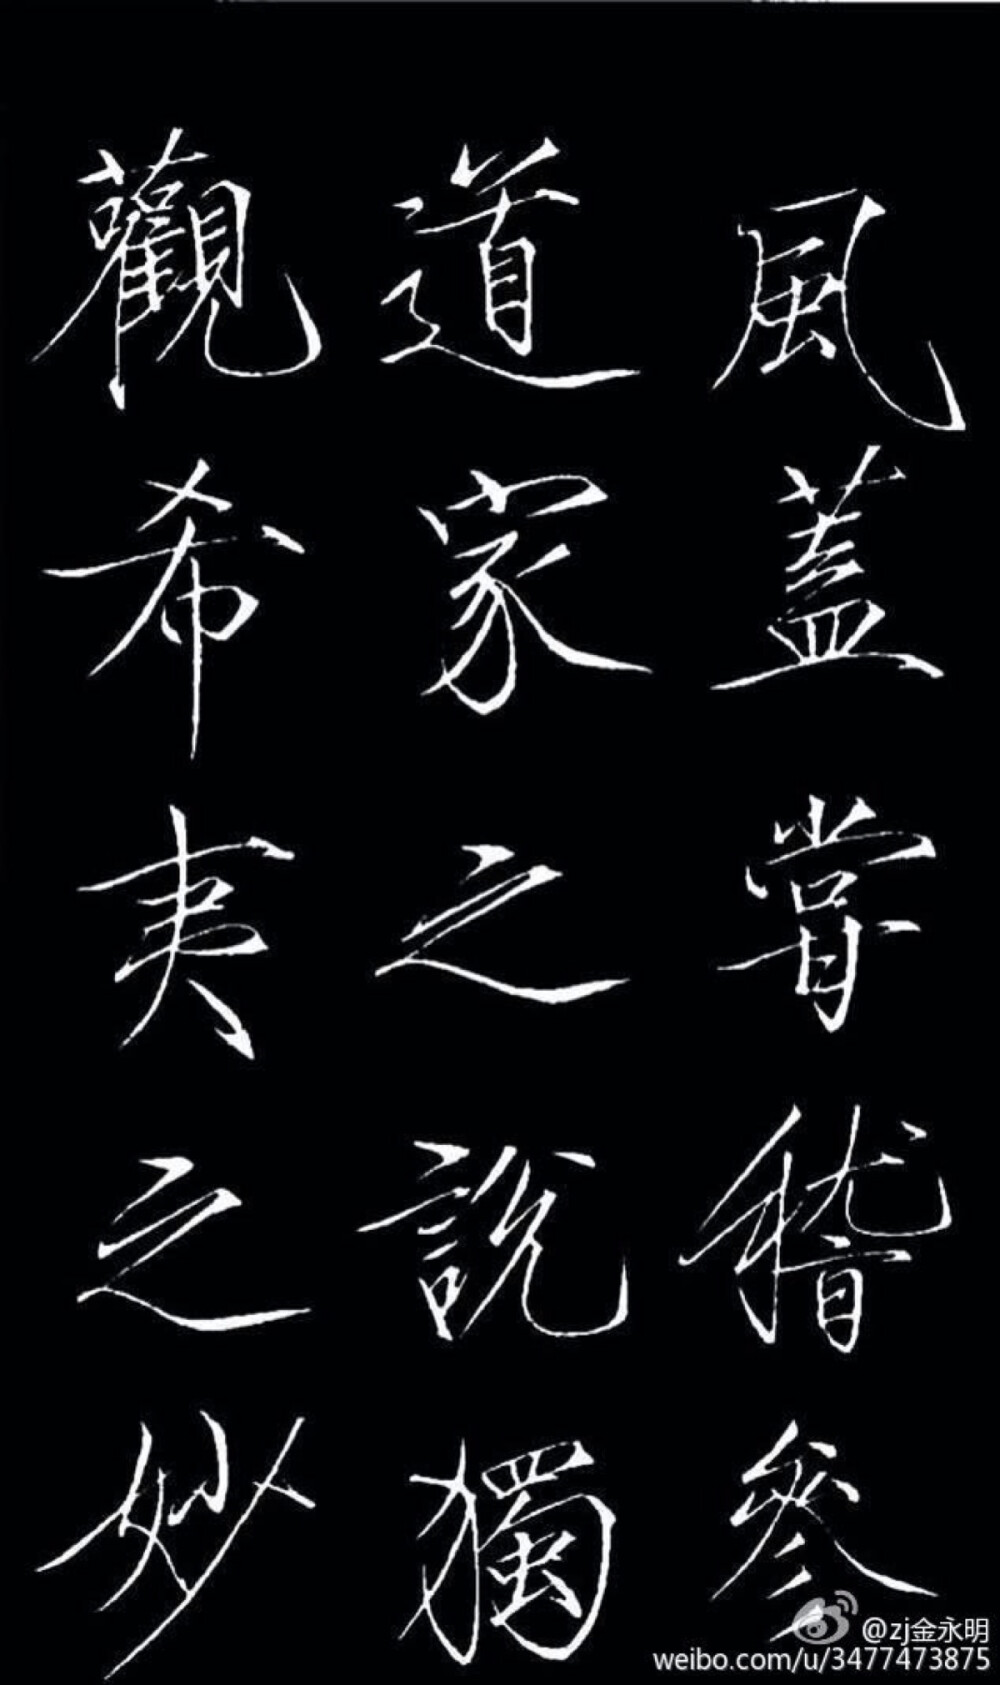 風蓋嘗稽參
道家之說獨
觀希夷之妙
@zj金永明
weibo.com/u/3477473875